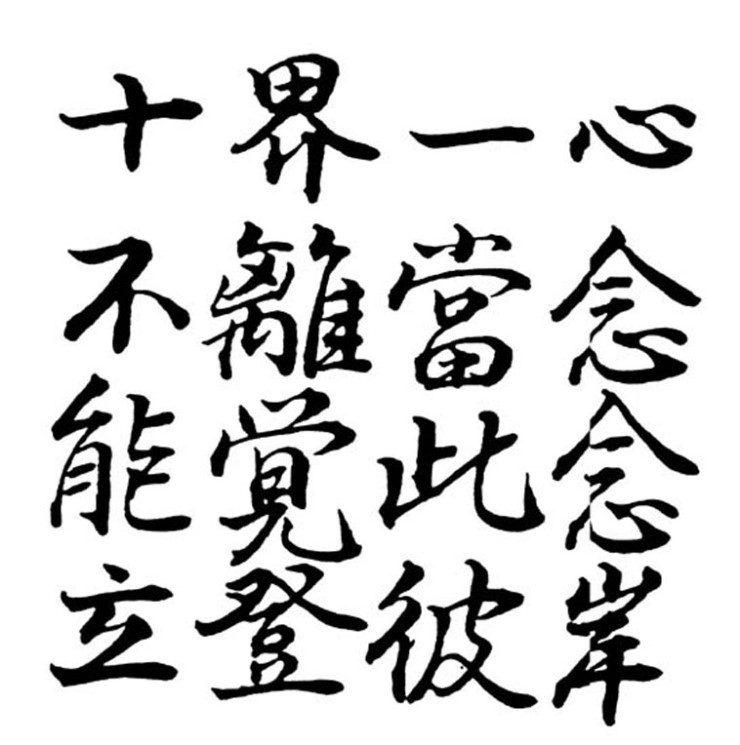 十界一心
不離當念
能覚此念
立登彼岸